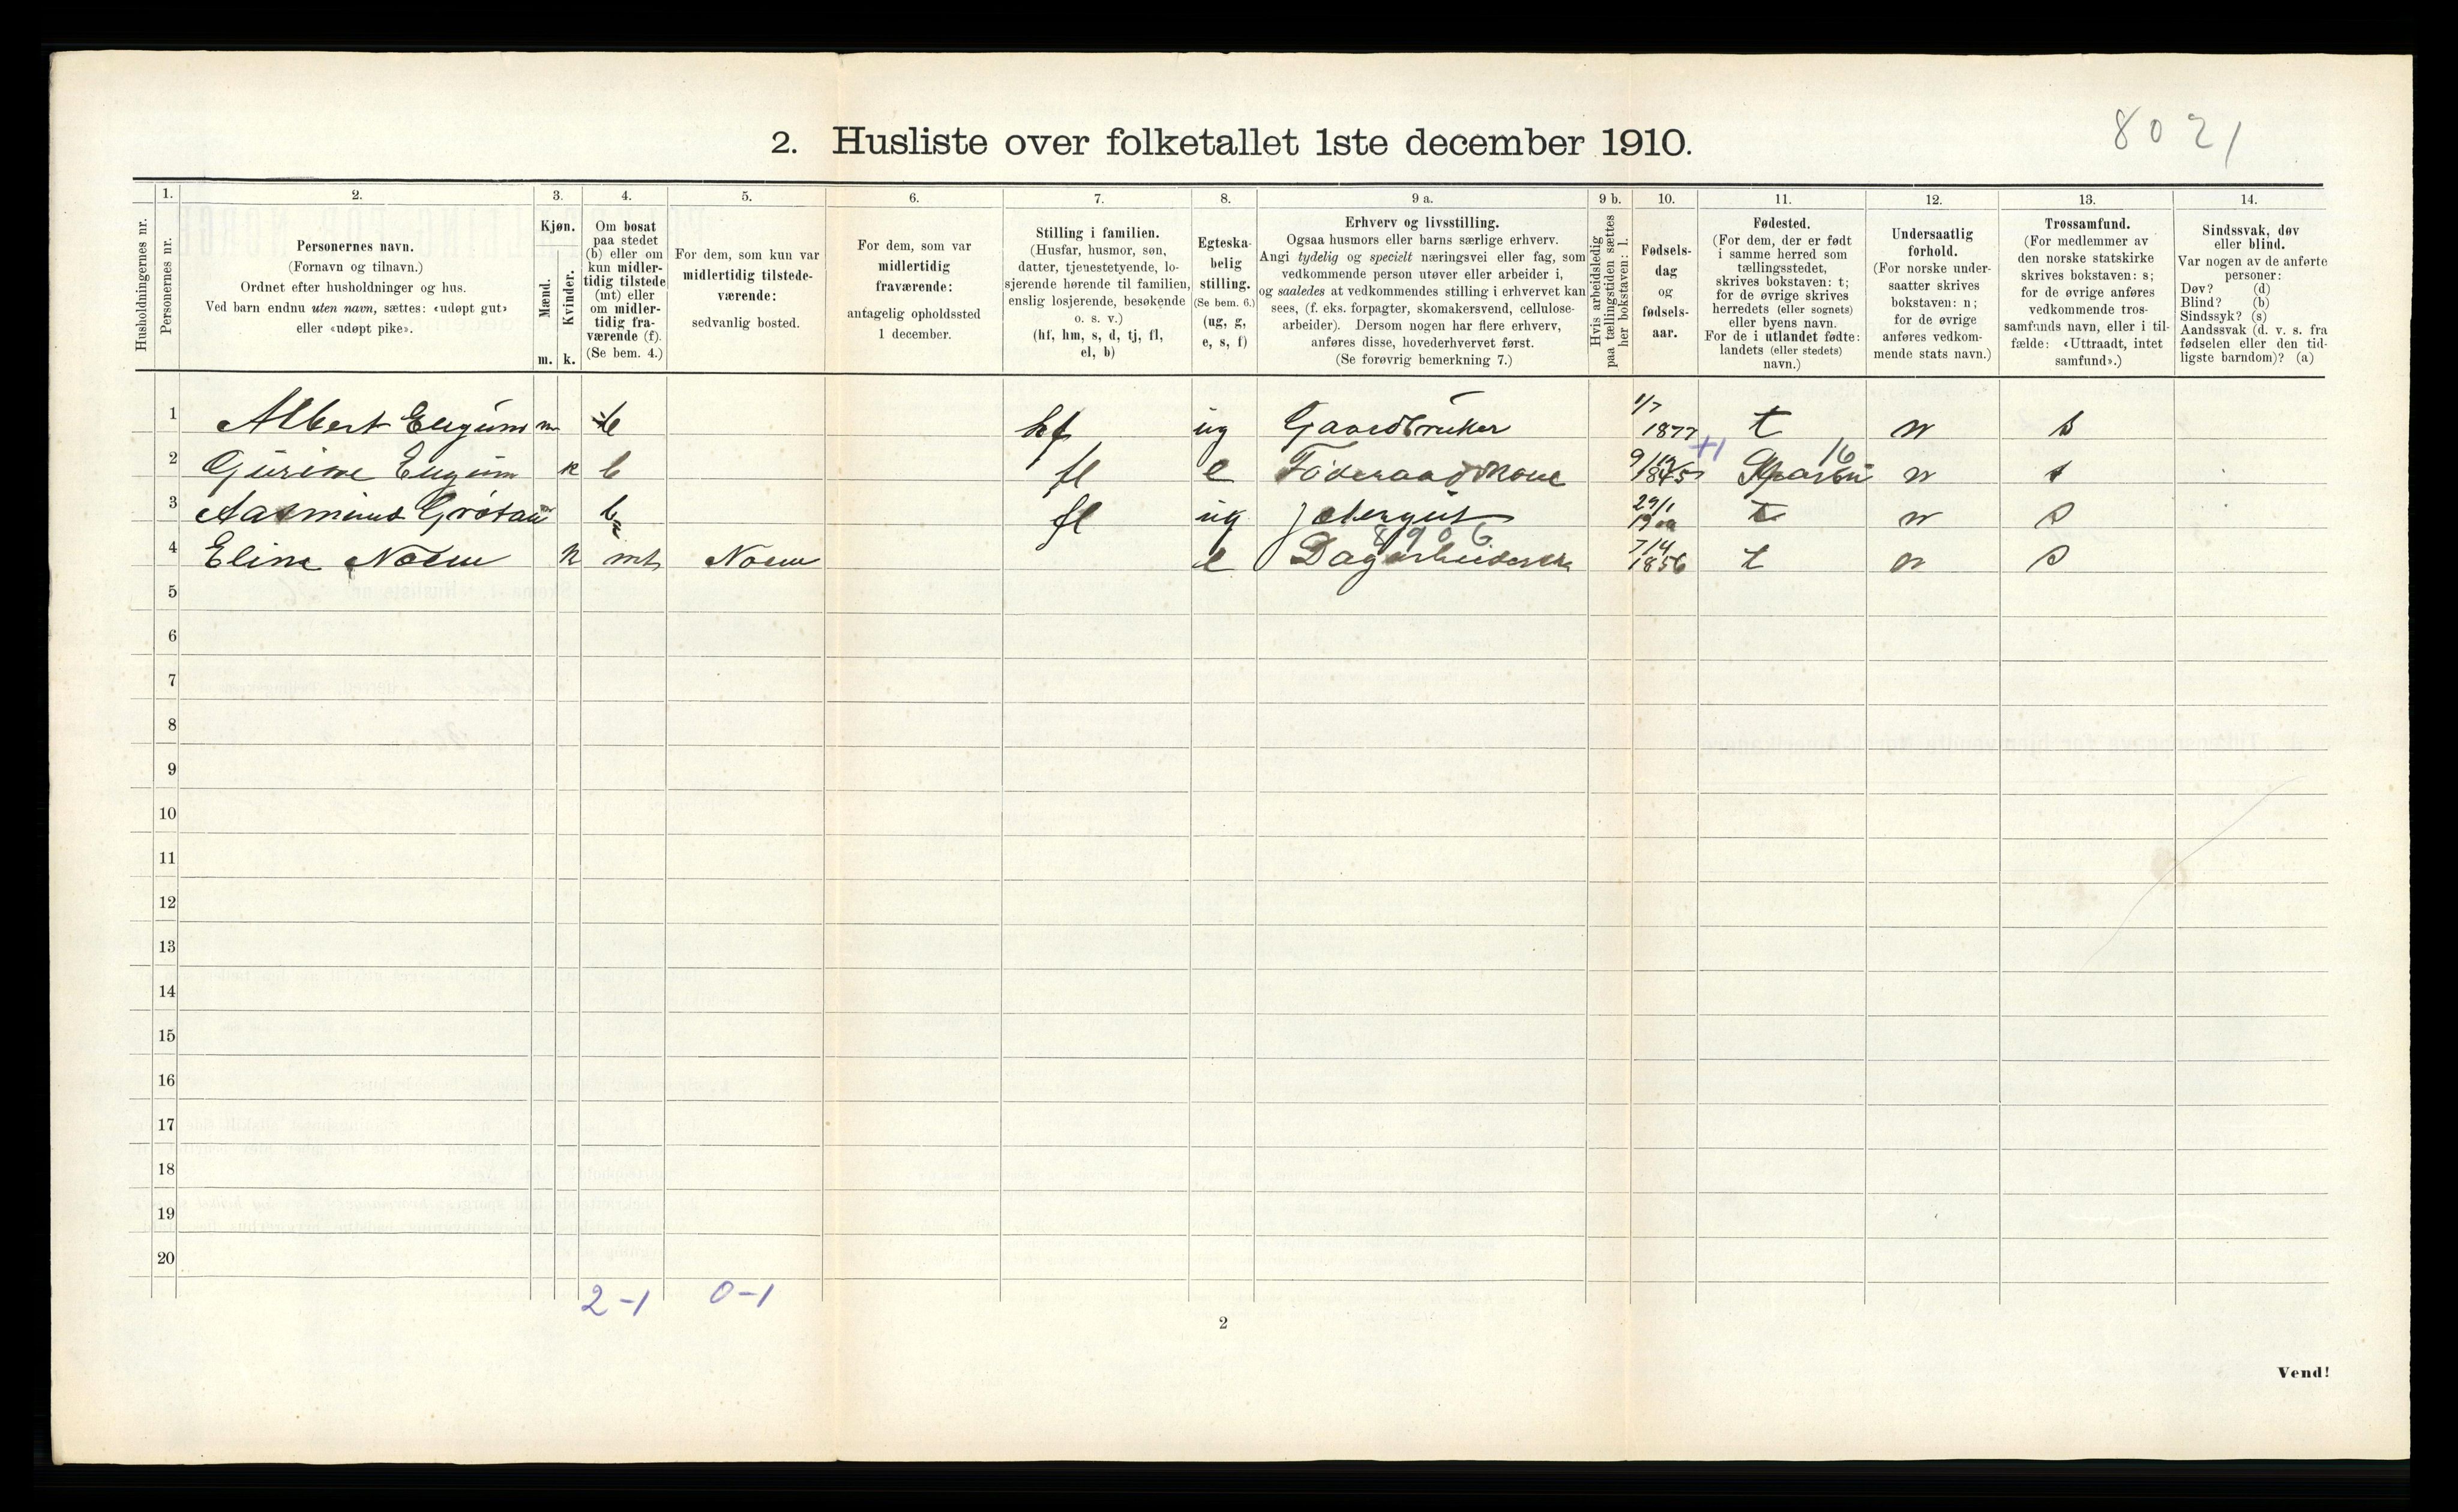 8021
2. Husliste over folketallet 1ste december 1910.
Husholdningernes nr.
1.
Personernes nr.
2.
Personernes navn.
(Fornavn og tilnavn.)
Ordnet efter husholdninger og hus.
Ved barn endnu uten navn, sættes: «udøpt gut»
eller «udøpt pike».
3.
Kjøn.
Mænd.
Kvinder.
m. k.
4.
Om bosat
paa stedet
(b) eller om
kun midler-
tidig tilstede
(mt) eller
om midler-
tidig fra-
værende (f).
(Se bem. 4.)
5.
For dem, som kun var
midlertidig tilstede-
værende:
sedvanlig bosted.
6.
For dem, som var
midlertidig
fraværende:
antagelig opholdssted
1 december.
7.
Stilling i familien.
(Husfar, husmor, søn,
datter, tjenestetyende, lo-
sjerende hørende til familien,
enslig losjerende, besøkende
o. s. v.)
(hf, hm, s, d, tj, fl,
el, b)
8.
Egteska-
belig
stilling.
(Se bem. 6.)
(ug, g,
e, s, f)
9 a.
Erhverv og livsstilling.
Ogsaa husmors eller barns særlige erhverv.
Angi tydelig og specielt næringsvei eller fag, som
vedkommende person utøver eller arbeider i,
og saaledes at vedkommendes stilling i erhvervet kan
sees, (f. eks. forpagter, skomakersvend, cellulose-
arbeider). Dersom nogen har flere erhverv,
anføres disse, hovederhvervet først.
(Se forøvrig bemerkning 7.)
9 b.
Hvis arbeidsledig
paa tællingstiden sættes
her bokstaven: l.
10.
Fødsels-
dag
og
fødsels-
aar.
11.
Fødested.
(For dem, der er født
i samme herred som
tællingsstedet,
skrives bokstaven: t;
for de øvrige skrives
herredets (eller sognets)
eller byens navn.
For de i utlandet fødte:
landets (eller stedets)
navn.)
12.
Undersaatlig
forhold.
(For norske under-
saatter skrives
bokstaven: n;
for de øvrige
anføres vedkom-
mende stats navn.)
13.
Trossamfund.
(For medlemmer av
den norske statskirke
skrives bokstaven: s;
for de øvrige anføres
vedkommende tros-
samfunds navn, eller i til-
fælde: «Uttraadt, intet
samfund».)
14.
Sindssvak, døv
eller blind.
Var nogen av de anførte
personer:
Døv? (d)
Blind? (b)
Sindssyk? (s)
Aandssvak (d. v. s. fra
fødselen eller den tid-
ligste barndom)? (a)
1 Albert m b hf ug Gaardbruker 1/7 1877 t n s
2 Gurine k b fl e Føderaadskone 9/12 1845 +1 Sparbu 16 n s
3 Aasmund b fl ug 29/1 t n s
8906
4 Eline Noem k mt Noem e Dagarbeiderske 7/4 1856 t n s
5
6
7
8
9
10
11
12
13
14
15
16
17
18
19
20
2-1 0-1
2
Vend!